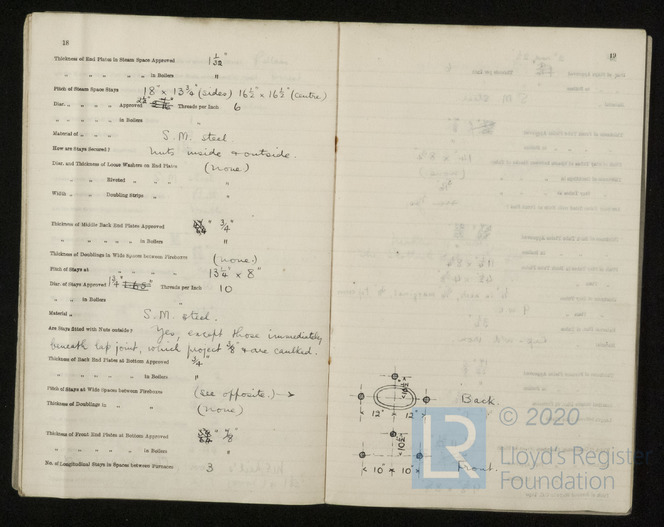 18
Thickness of End Plates in Steam Space Approved 1 1/32"
" " " " " in Boilers "
Pitch of Steam Space Stays 18" × 13 3/4" (sides) 16 1/2" × 16 1/2" (centre)
Diar. " " " " Approved Threads per Inch 6
" " " " in Boilers "
Material of " " " S.M. steel
How are Stays Secured? Nuts inside & outside.
Diar. and Thickness of Loose Washers on End Plates (none)
" " Riveted " " " "
Width " " Doubling Strips " " "
Thickness of Middle Back End Plates Approved 3/4"
" " " " " in Boilers "
Thickness of Doublings in Wide Spaces between Fireboxes (none.)
Pitch of Stays at " " " " 13 1/4" × 8"
Diar. of Stays Approved 1 3/4" Threads per Inch 10
" " in Boilers "
Material " S.M. steel.
Are Stays fitted with Nuts outside? Yes, except those immediately
beneath lap joint, which project 3/8" & are caulked.
Thickness of Back End Plates at Bottom Approved 3/4"
" " " " " in Boilers "
Pitch of Stays at Wide Spaces between Fireboxes (see opposite.) →
Thickness of Doublings in " " (none)
Thickness of Front End Plates at Bottom Approved 7/8"
" " " " " in Boilers "
No. of Longitudinal Stays in Spaces between Furnaces 3
19
10 1/2"
Back.
12" 12"
10 1/2"
Front.
10" 10"
© 2020
LR
Lloyd's Register
Foundation